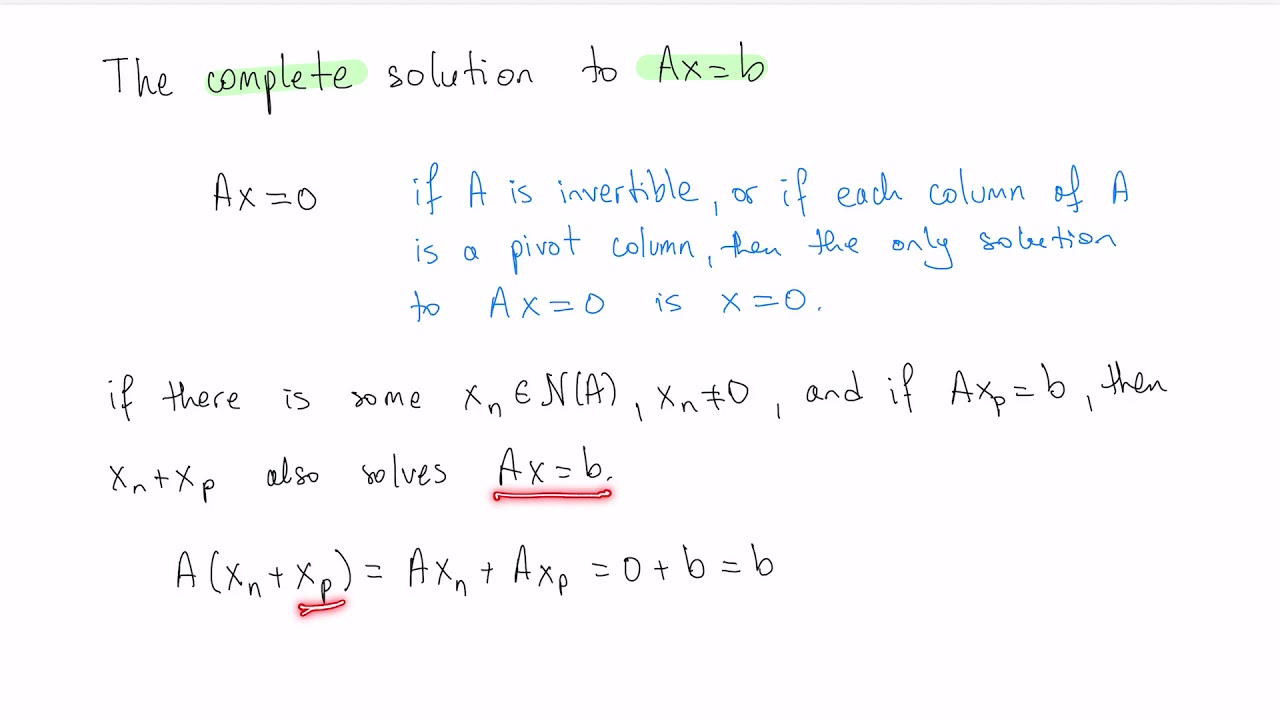 The complete solution to Ax=b
Ax=0 if A is invertible, or if each column of A
is a pivot column, then the only solution
to Ax=0 is x=0.
if there is some xₙ ∈ N(A), xₙ≠0, and if Axₚ=b, then
xₙ+xₚ also solves Ax=b.
A(xₙ+xₚ) = Axₙ + Axₚ = 0 + b = b